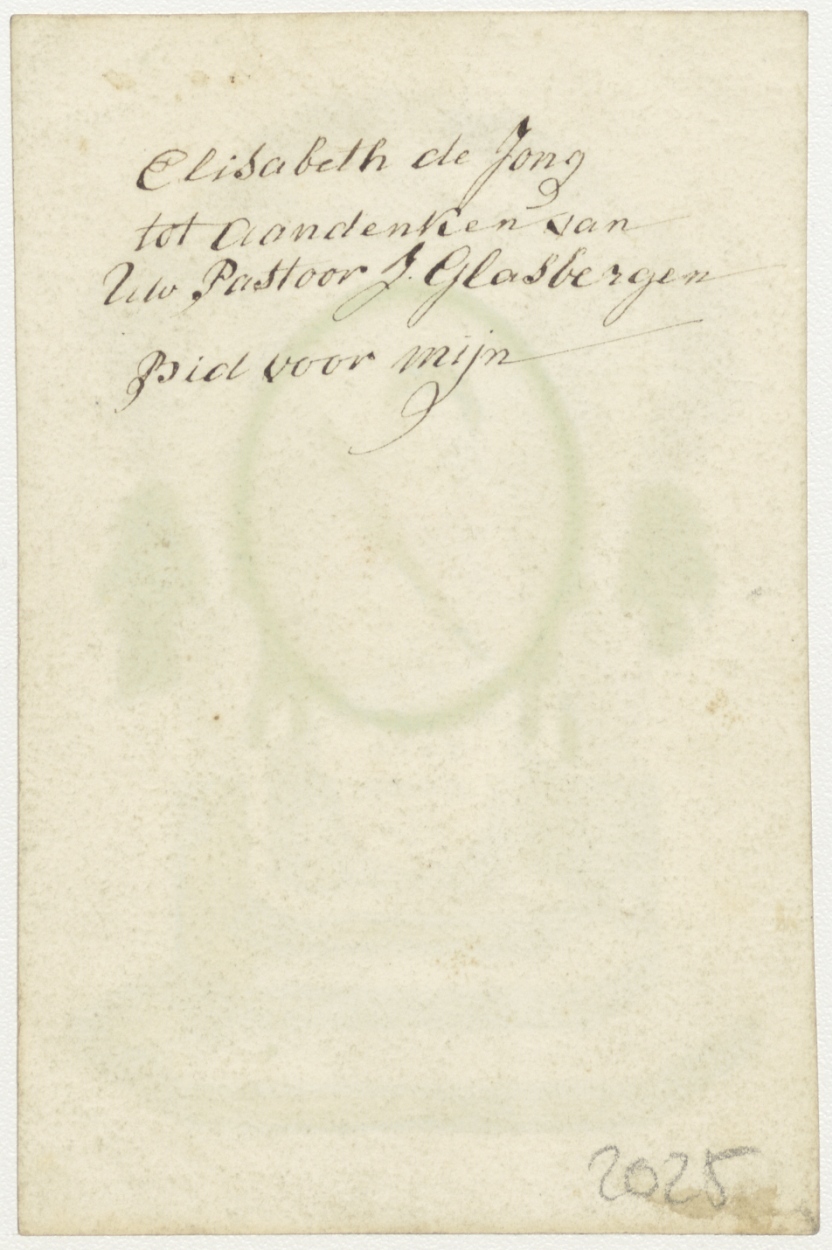 Elisabeth de Jong
tot Aandenken van
Uw Pastoor J. Glasbergen
Bid voor mijn
2025